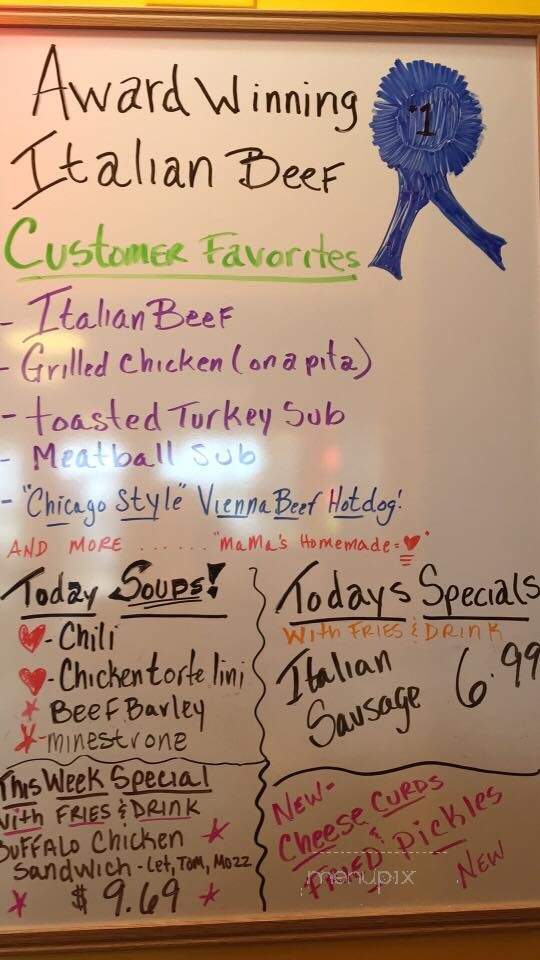 Award Winning
#1
Italian Beef
Customer Favorites
- Italian Beef
- Grilled Chicken (on a pita)
- toasted Turkey Sub
- Meatball Sub
- "Chicago Style" Vienna Beef Hotdog!
AND MORE ...... "MaMa's Homemade=♥"
Today Soups!
♥-Chili
♥-Chicken tortelini
*BeeF Barley
*-minestrone
Todays Specials
With FRIES & DRINK
Italian 6.99
Sausage
This Week Special
With FRIES & DRINK
BUFFALO Chicken *
Sandwich - Let, Tom, Mozz
* $9.69 *
NEW-
Cheese CURDS
&
FRIED Pickles
NEW
menupix